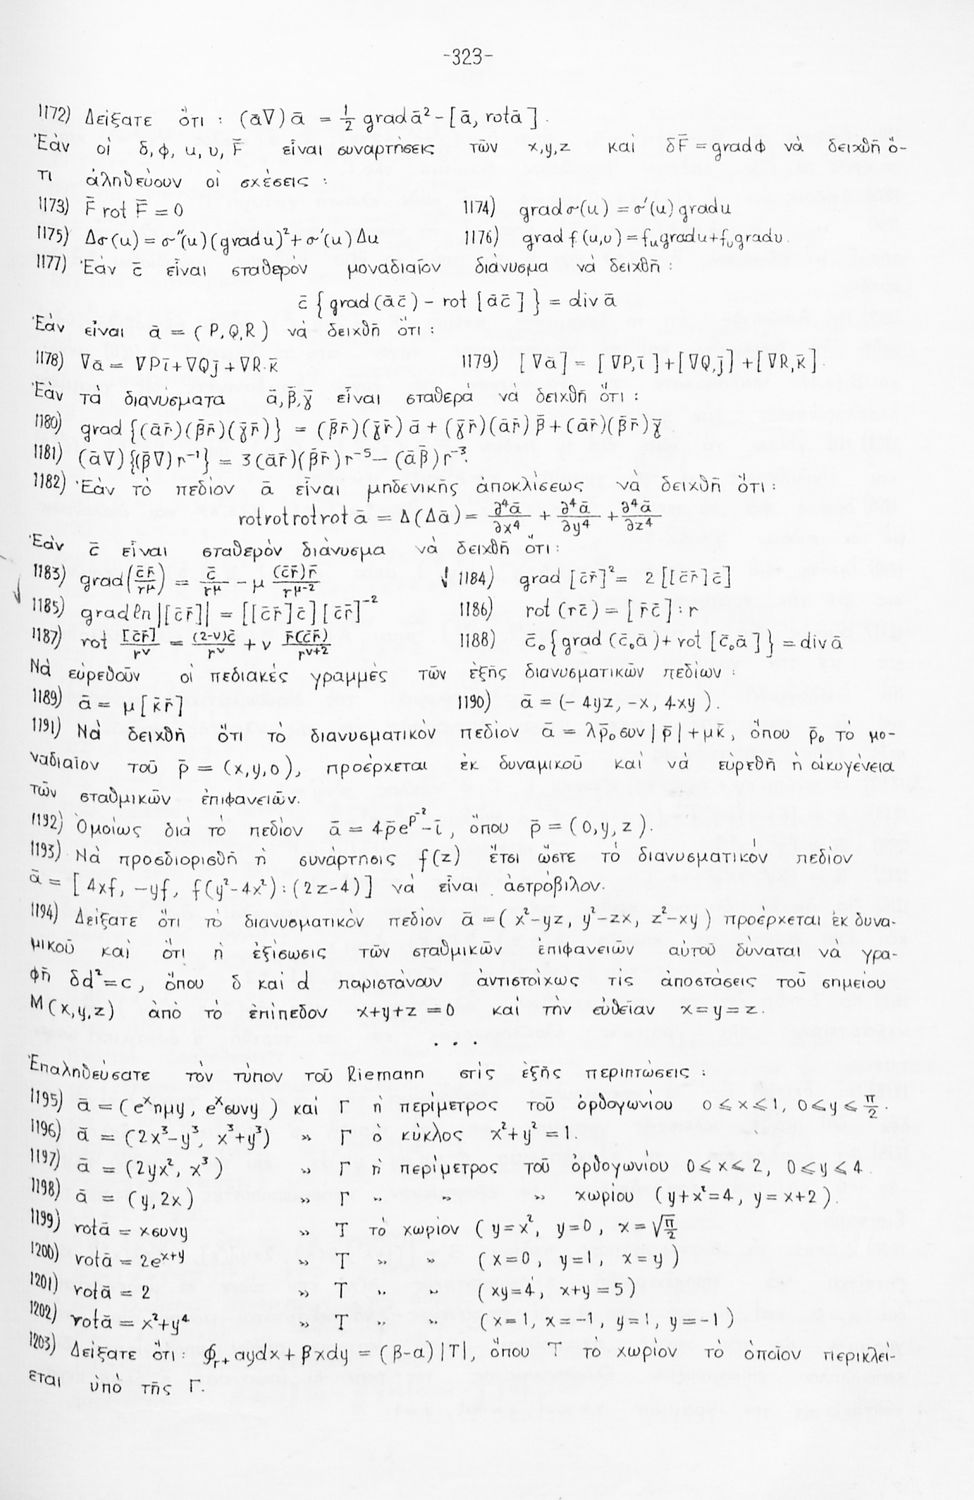 -323-
1172) Δείξατε ὅτι : (ā∇) ā = 1/2 grad ā² - [ā, rotā].
Ἐάν οἱ δ, φ, u, υ, F̄ εἶναι συναρτήσεις τῶν x,y,z καί δF̄ = gradφ νά δειχθῆ ὅ-
τι ἀληθεύουν οἱ σχέσεις :
1173) F̄ rot F̄ = 0 1174) gradσ(u) = σ′(u) gradu
1175) Δσ(u) = σ″(u)(gradu)² + σ′(u) Δu 1176) grad f(u,υ) = fᵤgradu + fᵥgradυ.
1177) Ἐάν c̄ εἶναι σταθερόν μοναδιαῖον διάνυσμα νά δειχθῆ :
c̄ { grad (āc̄) - rot [āc̄] } = div ā
Ἐάν εἶναι ā = (P,Q,R) νά δειχθῆ ὅτι :
1178) ∇ā = ∇Pī + ∇Qj̄ + ∇R·k̄ 1179) [∇ā] = [∇P,ī] + [∇Q,j̄] + [∇R,k̄].
Ἐάν τά διανύσματα ᾱ, β̄, γ̄ εἶναι σταθερά νά δειχθῆ ὅτι :
1180) grad {(ᾱr̄)(β̄r̄)(γ̄r̄)} = (β̄r̄)(γ̄r̄) ᾱ + (γ̄r̄)(ᾱr̄) β̄ + (ᾱr̄)(β̄r̄) γ̄.
1181) (ᾱ∇) {(β̄∇) r⁻¹} = 3(ᾱr̄)(β̄r̄) r⁻⁵ - (ᾱβ̄) r⁻³.
1182) Ἐάν τό πεδίον ā εἶναι μηδενικῆς ἀποκλίσεως νά δειχθῆ ὅτι :
rotrotrotrot ā = Δ(Δā) = ∂⁴ā/∂x⁴ + ∂⁴ā/∂y⁴ + ∂⁴ā/∂z⁴
Ἐάν c̄ εἶναι σταθερόν διάνυσμα νά δειχθῆ ὅτι :
1183) grad(c̄r̄/r^μ) = c̄/r^μ - μ (c̄r̄)r̄/r^(μ-2) 1184) grad [c̄r̄]² = 2 [[c̄r̄]c̄]
1185) gradℓn|[c̄r̄]| = [[c̄r̄]c̄] [c̄r̄]⁻² 1186) rot (rc̄) = [r̄c̄] : r
1187) rot [c̄r̄]/r^ν = (2-ν)c̄/r^ν + ν r̄(c̄r̄)/r^(ν+2) 1188) c̄₀{grad (c̄₀ā) + rot [c̄₀ā]} = divā
Νά εὑρεθοῦν οἱ πεδιακές γραμμές τῶν ἑξῆς διανυσματικῶν πεδίων :
1189) ā = μ[k̄r̄] 1190) ā = (-4yz, -x, 4xy).
1191) Νά δειχθῆ ὅτι τό διανυσματικόν πεδίον ā = λρ̄₀συν|ρ̄| + μk̄, ὅπου ρ̄₀ τό μο-
ναδιαῖον τοῦ ρ̄ = (x,y,0), προέρχεται ἐκ δυναμικοῦ καί νά εὑρεθῆ ἡ οἰκογένεια
τῶν σταθμικῶν ἐπιφανειῶν.
1192) Ὁμοίως διά τό πεδίον ā = 4ρ̄e^(ρ̄⁻²) - ī, ὅπου ρ̄ = (0,y,z).
1193) Νά προσδιορισθῆ ἡ συνάρτησις f(z) ἔτσι ὥστε τό διανυσματικόν πεδίον
ā = [4xf, -yf, f(y²-4x²):(2z-4)] νά εἶναι ἀστρόβιλον.
1194) Δείξατε ὅτι τό διανυσματικόν πεδίον ā = (x²-yz, y²-zx, z²-xy) προέρχεται ἐκ δυνα-
μικοῦ καί ὅτι ἡ ἐξίσωσις τῶν σταθμικῶν ἐπιφανειῶν αὐτοῦ δύναται νά γρα-
φῆ δd²=c, ὅπου δ καί d παριστάνουν ἀντιστοίχως τίς ἀποστάσεις τοῦ σημείου
M(x,y,z) ἀπό τό ἐπίπεδον x+y+z=0 καί τήν εὐθεῖαν x=y=z.
. . .
Ἐπαληθεύσατε τόν τύπον τοῦ Riemann στίς ἑξῆς περιπτώσεις :
1195) ā = (eˣημy, eˣσυνy) καί Γ ἡ περίμετρος τοῦ ὀρθογωνίου 0⩽x⩽1, 0⩽y⩽π/2.
1196) ā = (2x³-y³, x³+y³) „ Γ ὁ κύκλος x²+y²=1.
1197) ā = (2yx², x³) „ Γ ἡ περίμετρος τοῦ ὀρθογωνίου 0⩽x⩽2, 0⩽y⩽4.
1198) ā = (y,2x) „ Γ „ „ „ χωρίου (y+x²=4, y=x+2).
1199) rotā = xσυνy „ T τό χωρίον (y=x², y=0, x=√π/2
1200) rotā = 2e^(x+y) „ T „ „ (x=0, y=1, x=y)
1201) rotā = 2 „ T „ „ (xy=4, x+y=5)
1202) rotā = x²+y⁴ „ T „ „ (x=1, x=-1, y=1, y=-1)
1203) Δείξατε ὅτι : ∮_Γ+ αydx + βxdy = (β-α)|T|, ὅπου T τό χωρίον τό ὁποῖον περικλεί-
εται ὑπό τῆς Γ.